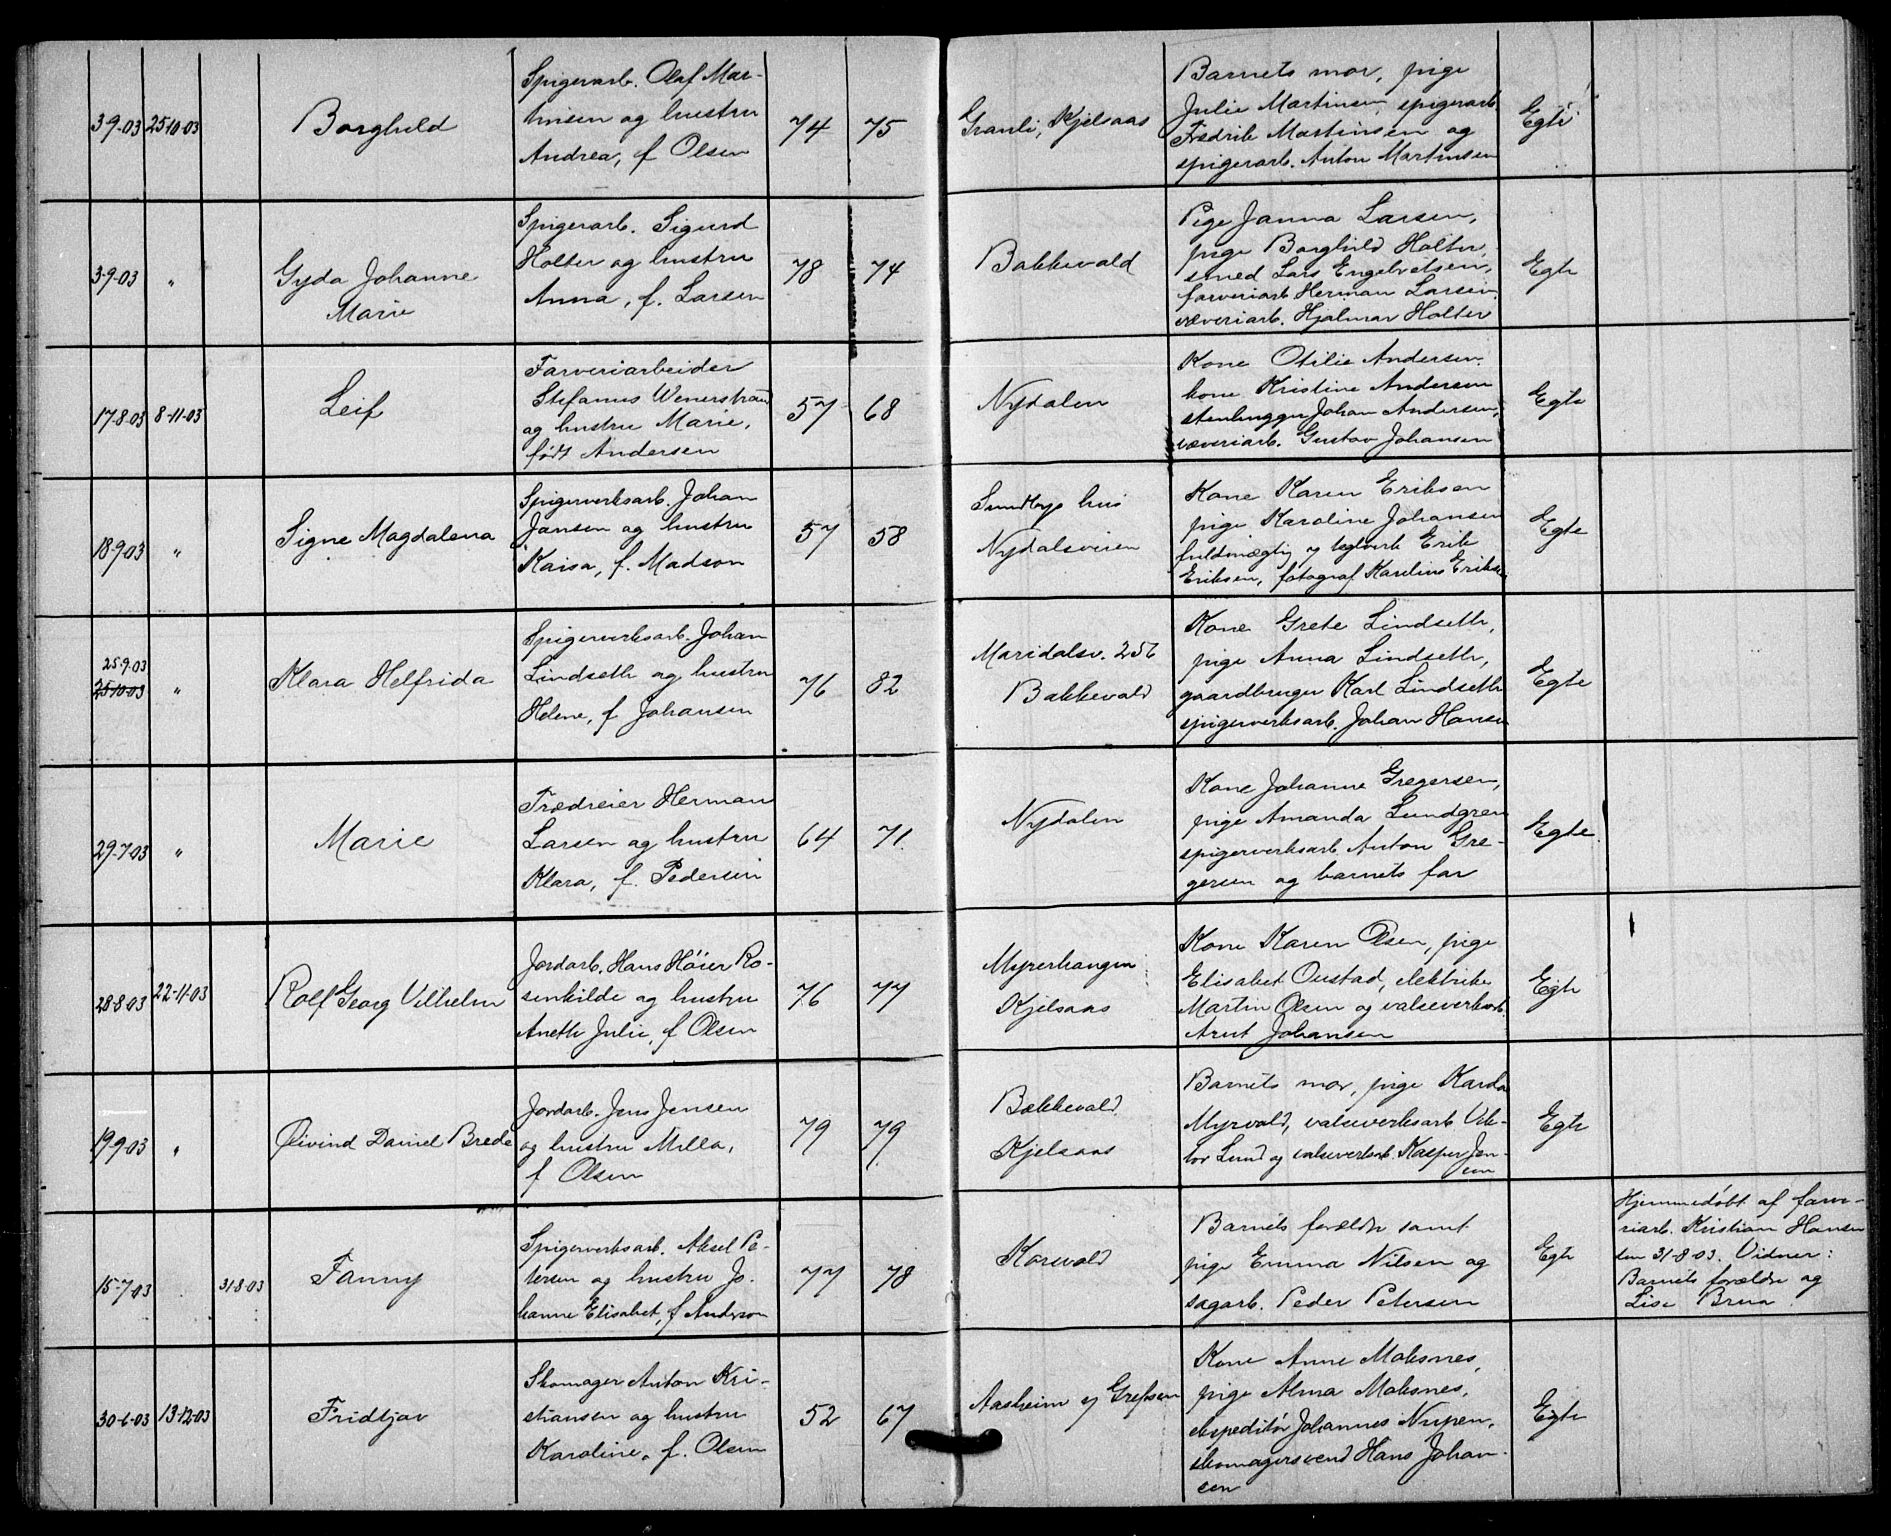 3-9-03 25-10-03
Borghild
Spigerarb. Olaf Mar-
tinsen og hustru
Andrea, f Olsen
74 75
Granli, Kjelsaas
Barnets mor, pige
Julie Martinsen, spigerarb
Fredrik Martinsen og
spigerarb. Anton Martinsen
Egte
3-9-03 "
Gyda Johanne
Marie
Spigerarb. Sigurd
Holter og hustru
Anna, f. Larsen
78 74
Bakkevold
Pige Janna Larsen,
pige Borghild Holter,
smed Lars Engebretsen,
farveriarb Herman Larsen,
væveriarb. Hjalmar Holter
Egte
17-8-03 8-11-03
Leif
Farveriarbeider
Stefanus Wenerstrand
og hustru Marie,
født Andersen
57 68
Nydalen
Kone Otilie Andersen
kone Kristine Andersen
stenhugger Johan Andersen,
væveriarb. Gustav Johansen
Egte
18-9-03 "
Signe Magdalena
Spigerverksarb. Johan
Jansen og hustru
Kaisa, f. Madson
57 58
Sundbys hus
Nydalsveien
Kone Karen Eriksen
pige Karoline Johansen
fuldmægtig v teglverk Erik
Eriksen, fotograf Karelius Eriksen
Egte
25-9-03
25-10-03 "
Klara Helfrida
Spigerverksarb. Johan
Lindseth og hustru
Helene, f Johansen
76 82
Maridalsv. 256
Bakkevold
Kone Grete Lindseth,
pige Anna Lindseth,
gaardbruger Karl Lindseth
spigerverksarb. Johan Hansen
Egte
29-7-03 "
Marie
Trædreier Herman
Larsen og hustru
Klara, f. Pedersen
64 71
Nydalen
Kone Johanne Gregersen,
pige Amanda Lundgren
spigerverksarb. Anton Gre-
gersen og barnets far
Egte
28-8-03 22-11-03
Rolf Georg Vilhelm
Jordarb. Hans Höier Ro-
senkilde og hustru
Anette Julie, f Olsen
76 77
Myrerhaugen
Kjelsaas
Kone Karen Olsen, pige
Elisabet Oustad, elektriker
Martin Olsen og valseverksarb.
Arnt Johansen
Egte
19-9-03 "
Øivind Daniel Brede
Jordarb. Jens Jensen
og hustru Milla,
f Olsen
79 79
Bakkevold
Kjelsaas
Barnets mor, pige
Myrvold, valseverksarb Vik-
tor Lund og valseverksarb. Kasper Jen-
sen
Egte
15-7-03 31-8-03
Fanny
Spigerverksarb. Aksel Pe-
tersen og hustru Jo-
hanne Elisabet, f Anderson
77 78
Korsvold
Barnets forældre samt
pige Emma Nilsen og
sagarb. Peder Petersen
Egte
Hjemmedöbt af farve-
riarb. Kristian Hansen
den 31-8-03. Vidner:
Barnets forældre og
Lise Brua
30-6-03 13-12-03
Fridtjov
Skomager Anton Kri-
stiansen og hustru
Karoline, f. Olsen
52 67
Aasheim v Grefsen
Kone Anne Moksnes,
pige Alma Moksnes,
ekspeditör Johannes Nupen,
skomagersvend Hans Johan-
sen
Egte